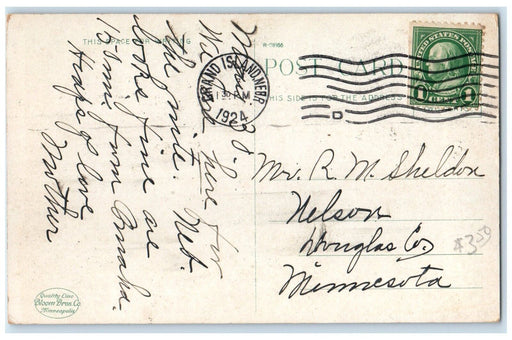 THIS SPACE FOR WRITING
here for
the nite. Neb.
looks fine are
150 mi from Omaha.
Heaps of love
Mother
R-08966
POST CARD
THIS SIDE IS FOR THE ADDRESS
GRAND ISLAND, NEBR.
PM
1924
UNITED STATES POSTAGE
1 1
Mr. R. M. Sheldon
Nelson
Douglas Co.
Minnesota
$3.50
Quality Line
Bloom Bros. Co.
Minneapolis